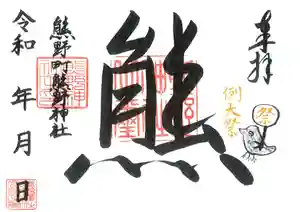 奉拝
例大祭
祭
熊
熊野町熊野神社
令和 年 月 日